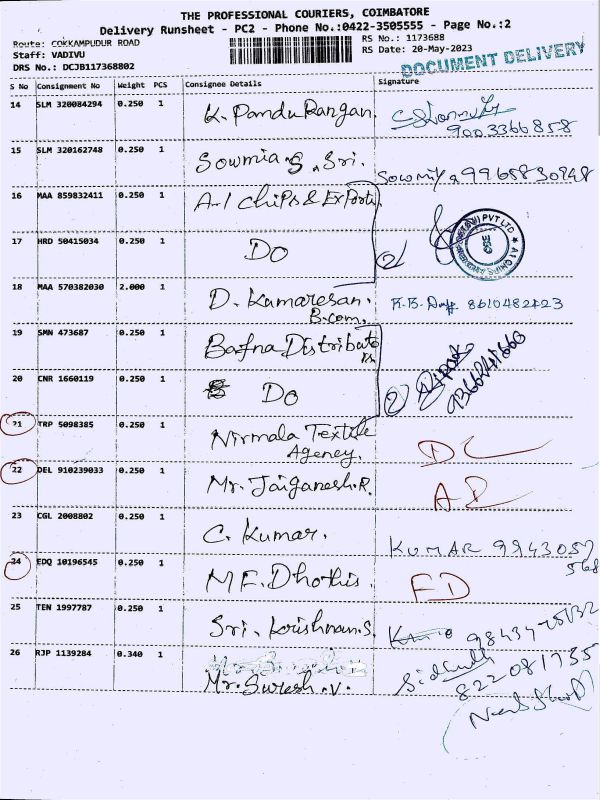 THE PROFESSIONAL COURIERS, COIMBATORE
Delivery Runsheet - PC2 - Phone No.:0422-3505555 - Page No.:2
Route: COKKAMPUDUR ROAD
RS No.: 1173688
Staff: VADIVU
RS Date: 20-May-2023
DRS No.: DCJB117368802
DOCUMENT DELIVERY
S No Consignment No Weight PCS Consignee Details Signature
14 SLM 320084294 0.250 1 K. PanduRangan.
9003366858
15 SLM 320162748 0.250 1 Sowmia S. Sri. Sowmiya 9965830248
16 MAA 859832411 0.250 1 A-1 Chips & Exports
17 HRD 50415034 0.250 1 DO 2
18 MAA 570382030 2.000 1 D. Kamaresan. B.com. 8610482723
19 SMN 473687 0.250 1 Bafna Distributors
20 CNR 1660119 0.250 1 DO 2
21 TRP 5098385 0.250 1 Nirmala Textile Agency. DL
22 DEL 910239033 0.250 1 Mr. Jaiganesh.R. AD
23 CGL 2008802 0.250 1 C. Kumar. KUMAR 9943057568
24 EDQ 10196545 0.250 1 M.E. Dhothis. FD
25 TEN 1997787 0.250 1 Sri. Krishnan.S.
26 RJP 1139284 0.340 1 Mr. Suresh.V. Sidharth